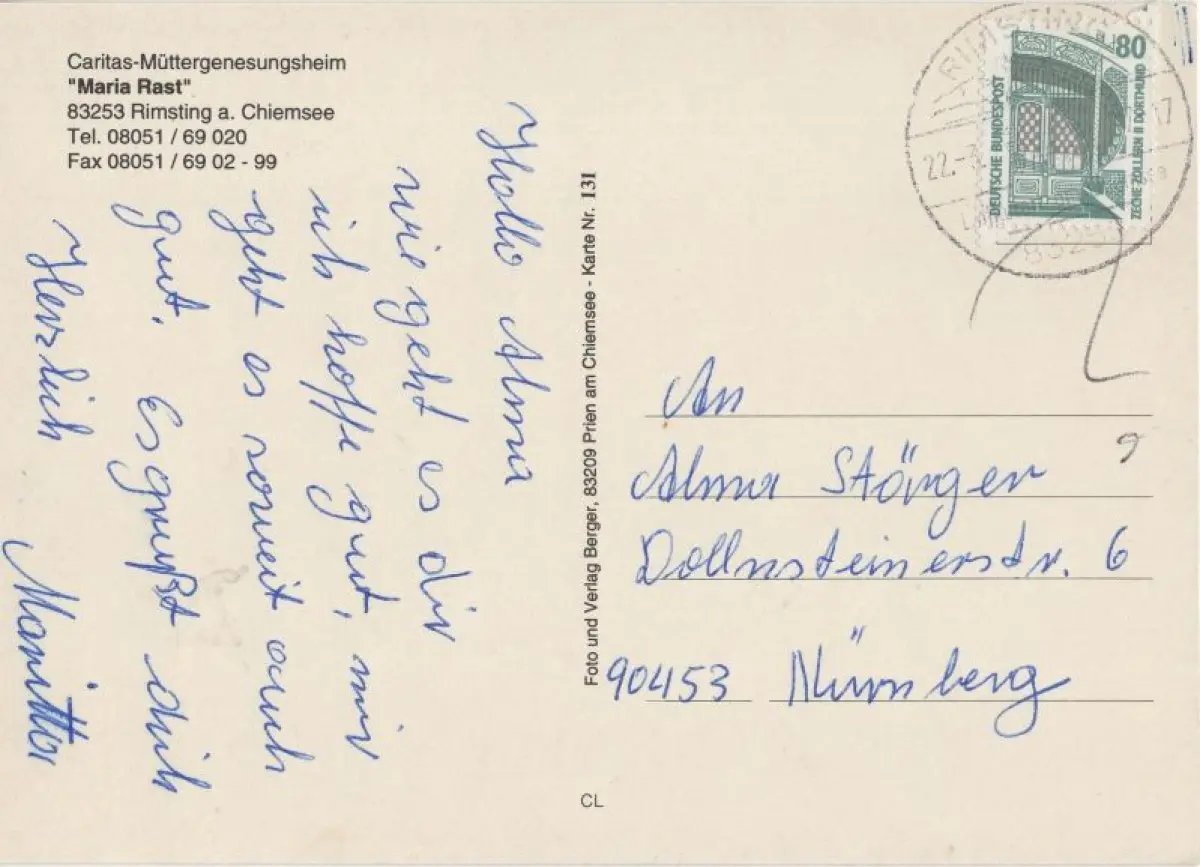 Caritas-Müttergenesungsheim
"Maria Rast"
83253 Rimsting a. Chiemsee
Tel. 08051 / 69 020
Fax 08051 / 69 02 - 99
Hallo Alma
wie geht es dir
ich hoffe gut, mir
geht es soweit auch
gut. Es grüßt dich
Herzlich
Foto und Verlag Berger, 83209 Prien am Chiemsee - Karte Nr. 131
RIMSTING
22.-
17
832
80
DEUTSCHE BUNDESPOST
ZECHE ZOLLERN II DORTMUND
An
Alma Störger
Dollnsteinerstr. 6
90453 Nürnberg
CL